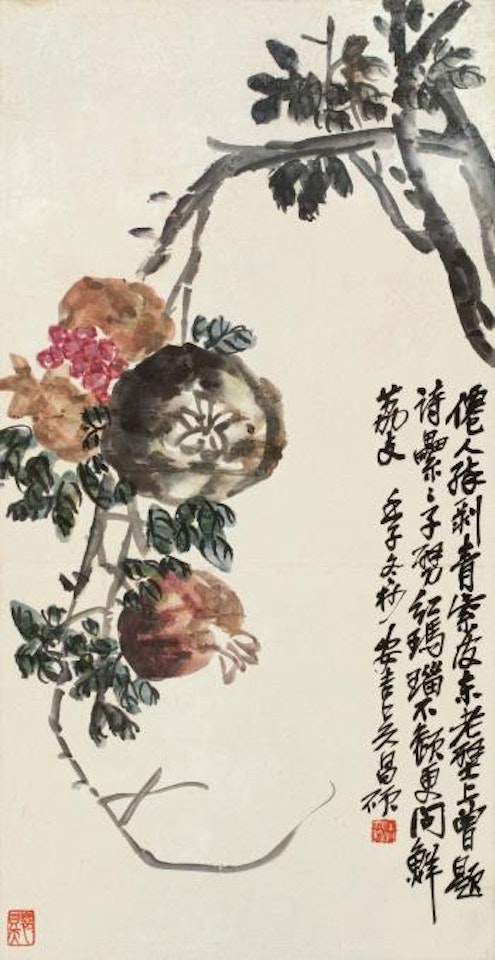 僊人醉剥青紫皮東老壁上曾題
詩纍〻子劈紅瑪瑙不願更問鮮
荔支 壬子冬杪安吉吳昌碩